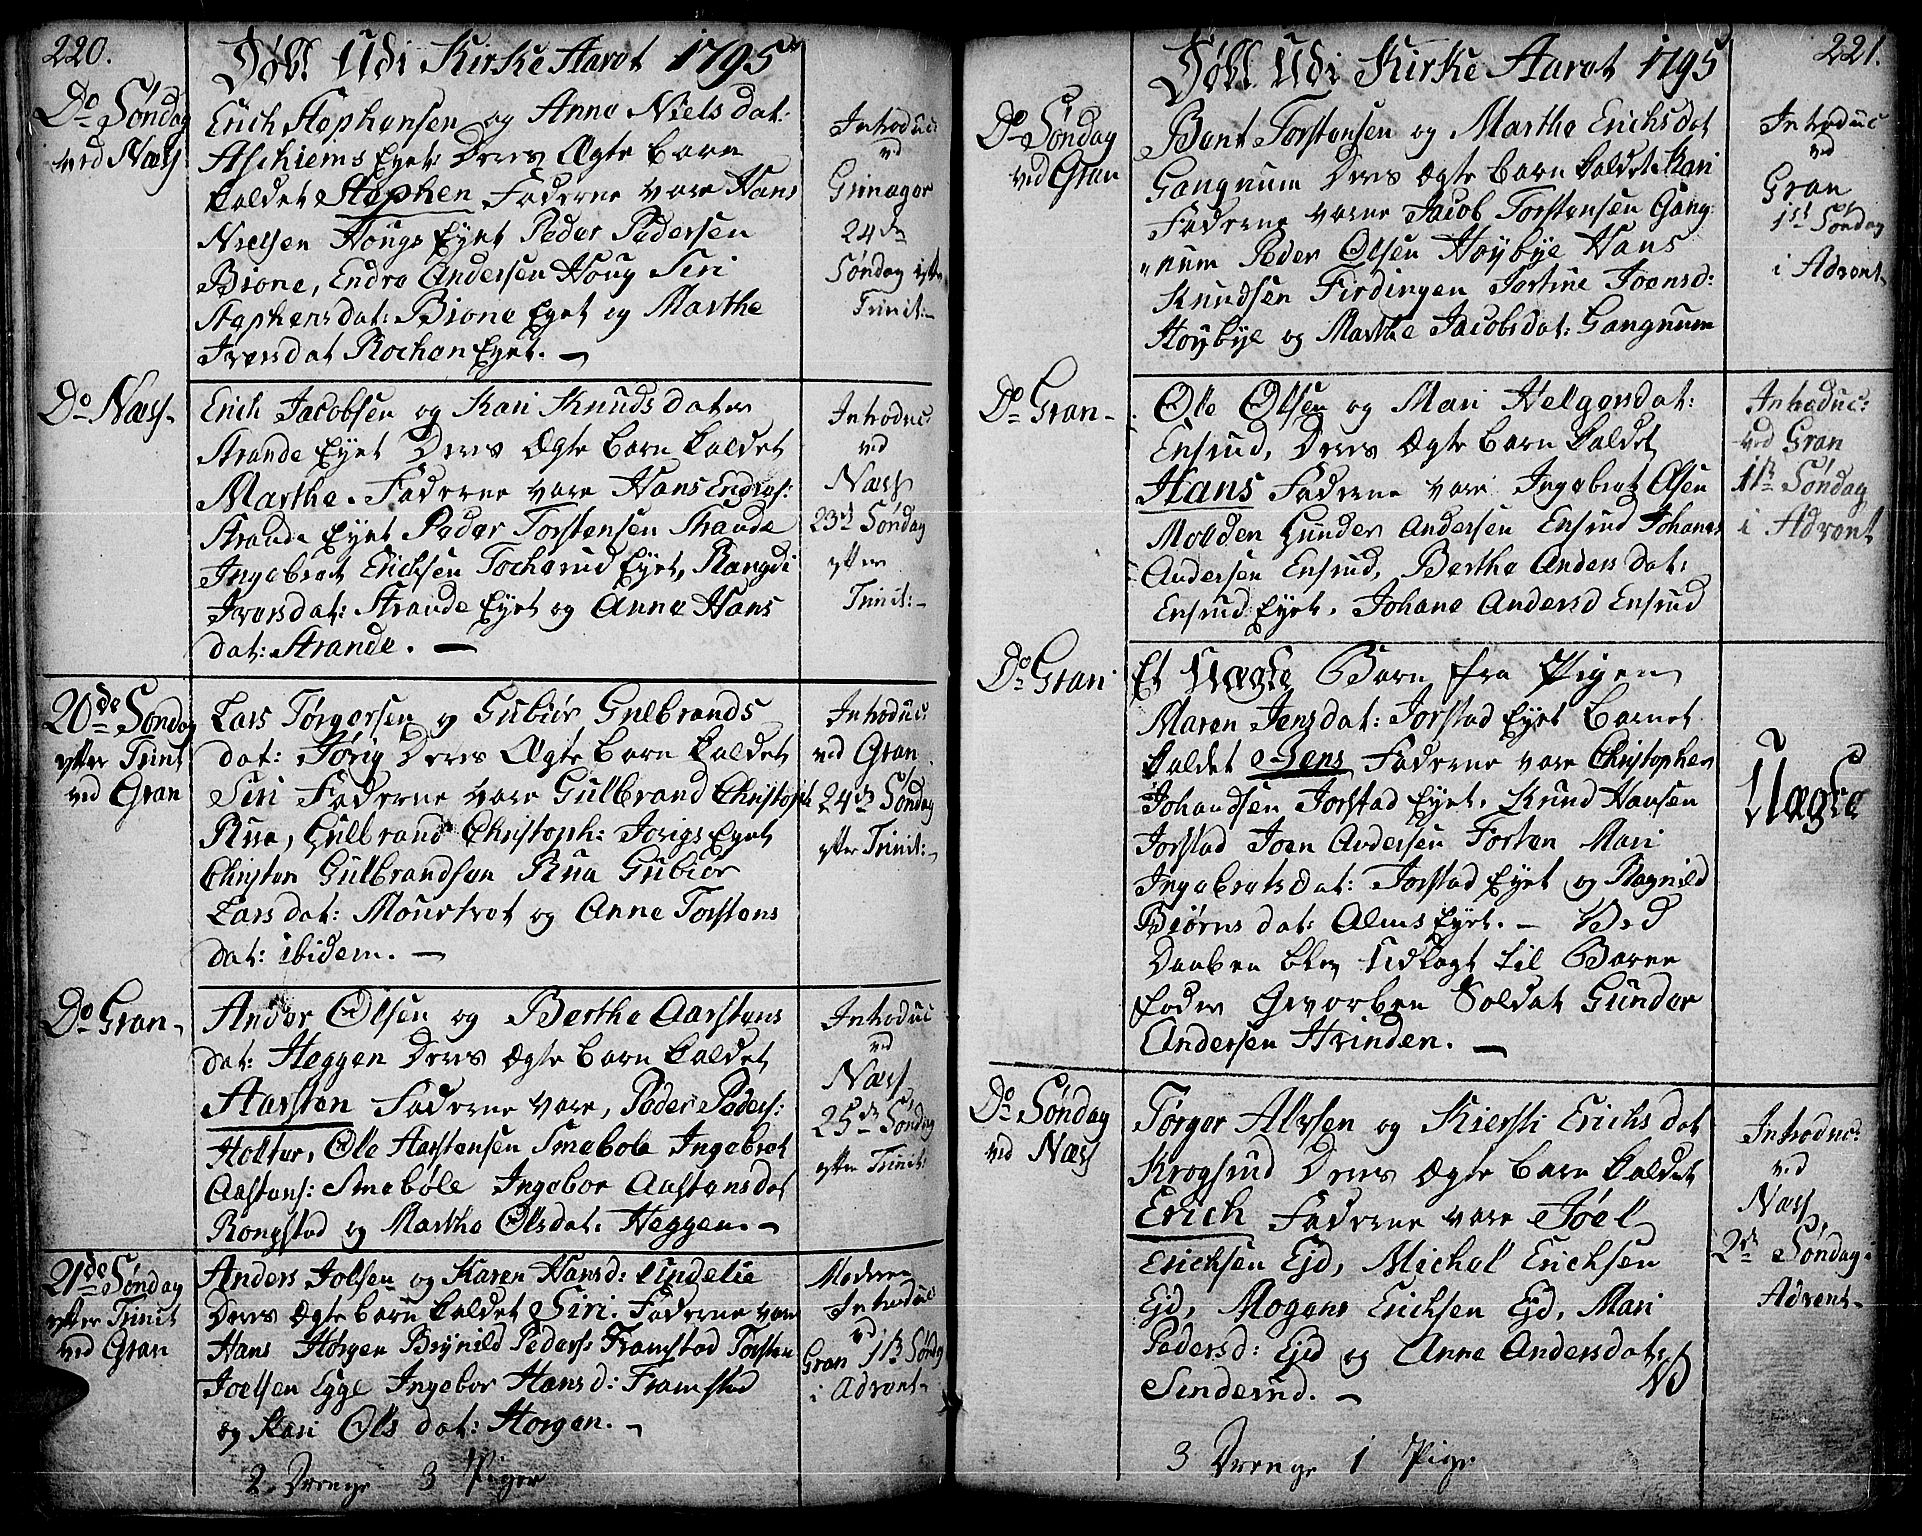 220.
Døbt Udi Kirke Aaret 1795
Do Søndag
ved Næss
Erich Stephensen og Anne Niels dat:
Aschiems Eyet: Deres Ægte Barn
kaldet Stephen Faderne vare Hans
Nielsen Hougs Eyet Peder Pedersen
Bione, Endre Andersen Houg Siri
Stephens dat: Bione Eyet og Marthe
Ivers dat Rochen Eyet. —
Introduc:
vd
Grinager
24de
Søndag efter
Trinit:
Do Næss
Erich Jacobsen og Kari Knuds dater
Strande Eyet Deres Ægte Barn kaldet
Marthe. Faderne vare Hans Endres:
Strande Eyet Peder Torstensen Strande
Ingebret Ericksen Tocherud Eyet, Rangdi
Ivers dat: Strande Eyet og Anne Hans
dat: Strande. —
Introduc:
ved
Næss
23de Søndag
efter
Trinit:
20de Søndag
efter Trinit
ved Gran
Lars Tørgersen og Gubiør Gulbrands
dat: Jørig Deres Ægte Barn kaldet
Siri Faderne vare Gulbrand Christoph
Rua, Gulbrand Christoph: Jorigs Eyet
Christen Gulbrandsen Rua Gubiør
Lars dat: Moustret og Anne Torstens
dat: ibidem. —
Introduc:
ved Gran
24de Søndag
efter Trinit:
Do Gran
Ander Olsen og Berthe Aarstens
dat: Heggen Deres Ægte Barn kaldet
Aarsten Faderne vare, Peder Peders:
Holter, Ole Aarstensen Smebøle Ingebret
Aastens: Smebøle Ingebor Aastens dat
Rongstad og Marthe Olsdat: Heggen. —
Introduc
vd
Næss
25de Søndag
efter Trinit:
21de Søndag
efter Trinit
ved Gran
Anders Jolsen og Karen Hansd: Lindelie
Deres Ægte Barn kaldet Siri. Faderne vare
Hans Horgen Brynild Peders: Framstad Torsten
Joelsen Egge Ingebor Hans d: Framstad
og Kari Ols dat: Horgen. —
Moderen
Introduc
vd
Gran 1ste Søndg
i Advent
2 Drenge 3 Piger
221.
Døbt Udi Kirke Aaret 1795
Do Søndag
ved Gran
Bent Torstensen og Marthe Erichsdat
Gangnum Deres Ægte Barn kaldet Kari
Faderne varne Jacob Torstensen Gang
"num Peder Olsen Høybye Hans
Knudsen Firdingen Jortine Joensd:
Høybye og Marthe Jacobsdat: Gangnum
Introduc
vd
Gran
1ste Søndag
i Advent
Do Gran
Ole Olsen og Mari Helgersdat:
Ensrud, Deres Ægte Barn kaldet
Hans Faderne vare Ingebret Olsen
Molden Gunder Andersen Ensrud Johanes
Andersen Ensrud, Berthe Anders dat:
Ensrud Eyet, Johane Andersd Ensrud
Introduc:
ved Gran
1ste Søndag
i Advent
Do Gran
Et Uægte Barn fra Pigen
Maren Jensdat: Jorstad Eyet Barnet
kaldet Jens Faderne vare Christopher
Johandsen Jorstad Eyet, Knud Hansen
Jorstad Joen Andersen Forten Mari
Ingebrets dat: Jorstad Eyet og Ragnild
Biørns dat: Alms Eyet. — Ved
Daaben blev Udlagt til Barne
fader Gevorben Soldat Gunder
Andersen Hvinden. —
Uægte
Do Søndag
ved Næss
Torger Alvsen og Kiersti Erichs dat
Krogsrud Deres Ægte Barn kaldet
Erich Faderne vare Joel
Ericksen Ejd, Michel Ericksen
Ejd, Mogens Ericksen Ejd, Mari
Pedersd: Ejd og Anne Andersdat:
Sinderud. —
Introduc:
ved
Næss
2den Søndag i
Advent
3 Drenge 1 Pige